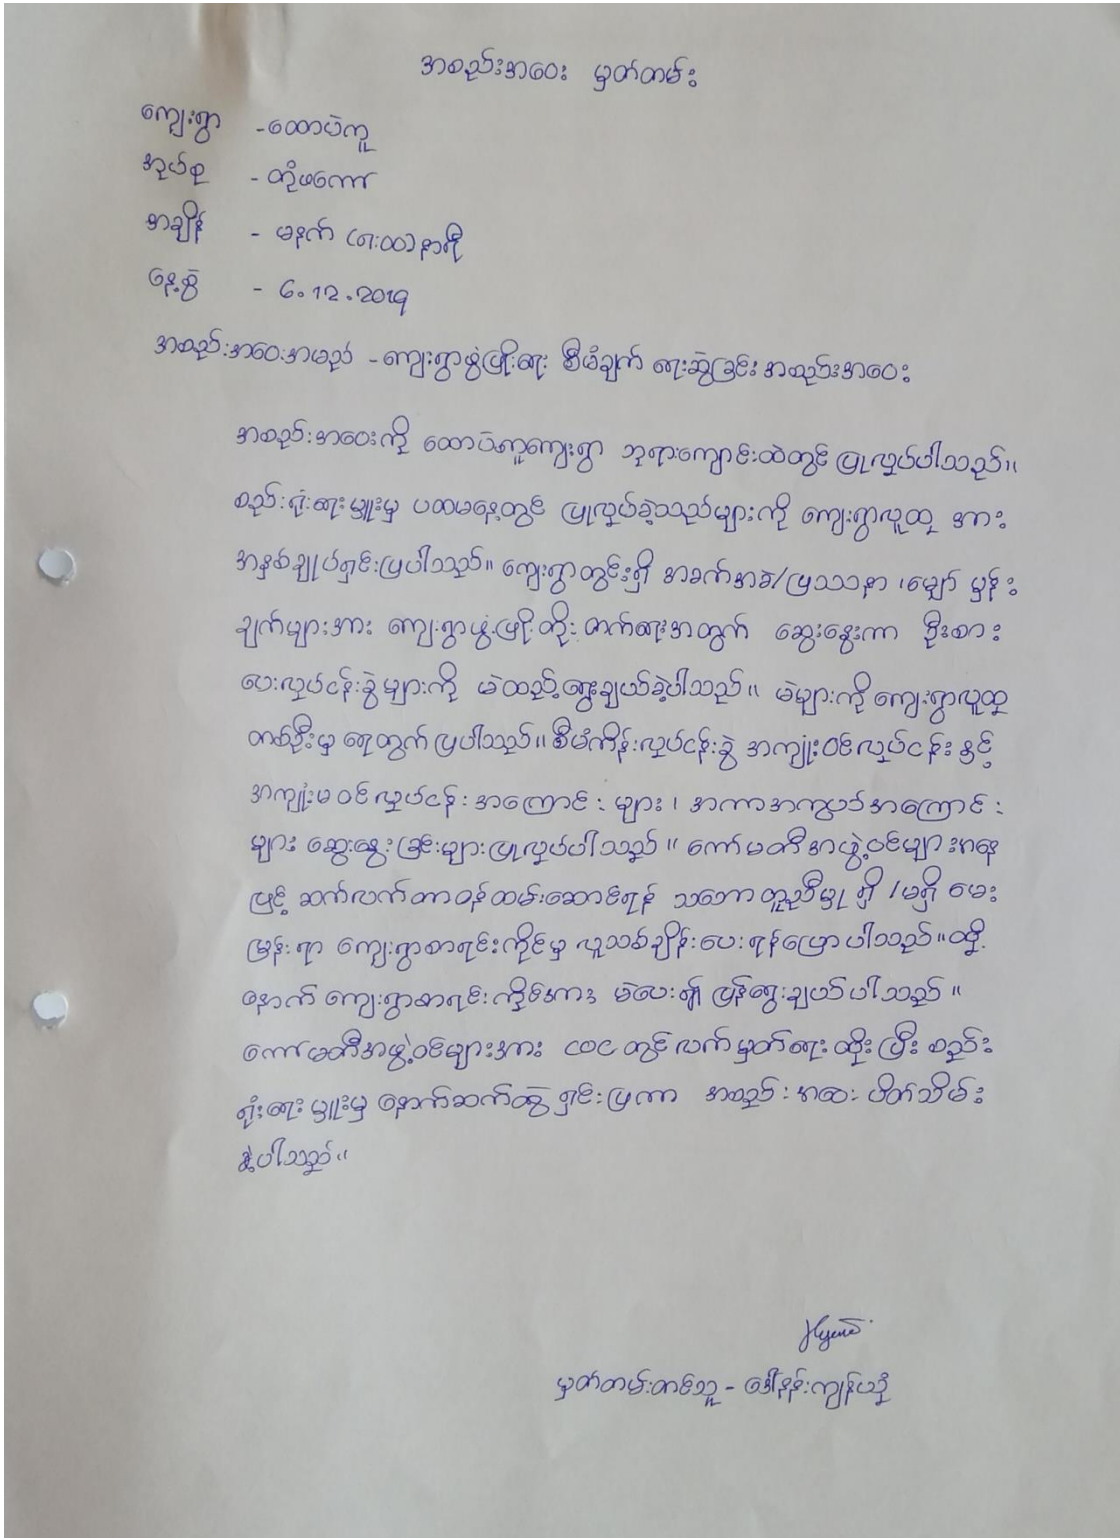 အစည်းအဝေး မှတ်တမ်း
ကျေးရွာ -ထောပဲကူ
အုပ်စု - တီုဖကော်
အချိန် - မနက် (၈:၀၀) နာရီ
နေ့စွဲ - 6.12.2019
အစည်းအဝေးအမည် - ကျေးရွာဖွံ့ဖြိုးရေး စီမံချက် ရေးဆွဲခြင်း အစည်းအဝေး
အစည်းအဝေးကို ထောပဲကူကျေးရွာ ဘုရားကျောင်းထဲတွင် ပြုလုပ်ပါသည်။
စည်းရုံးရေးမှူးမှ ပထမနေ့တွင် ပြုလုပ်ခဲ့သည်များကို ကျေးရွာလူထု အား
အနှစ်ချုပ်ရှင်းပြပါသည်။ ကျေးရွာတွင်းရှိ အခက်အခဲ/ပြဿနာ ၊မျှော် မှန်း
ချက်များအား ကျေးရွာဖွံ့ဖြိုးတိုးတက်ရေးအတွက် ဆွေးနွေးကာ ဦးစား
ပေးလုပ်ငန်းခွဲများကို မဲထည့်ရွေးချယ်ခဲ့ပါသည်။ မဲများကို ကျေးရွာလူထု
တစ်ဦးမှ ရေတွက်ပြပါသည်။ စီမံကိန်းလုပ်ငန်းခွဲ အကျုံးဝင်လုပ်ငန်း နှင့်
အကျုံးမဝင်လုပ်ငန်း အကြောင်း များ၊ အကာအကွယ်အကြောင်း
များ ဆွေးနွေးခြင်းများပြုလုပ်ပါသည်။ ကော်မတီအဖွဲ့ဝင်များအနေ
ဖြင့် ဆက်လက်တာဝန်ထမ်းဆောင်ရန် သဘောတူညီမှု ရှိ /မရှိ မေး
မြန်းရာ ကျေးရွာစာရင်းကိုင်မှ လူသစ်ချိန်းပေးရန်ပြောပါသည်။ထို့
နောက် ကျေးရွာစာရင်းကိုင်အား မဲပေး၍ ပြန်ရွေးချယ်ပါသည်။
ကော်မတီအဖွဲ့ဝင်များအား COC တွင် လက်မှတ်ရေးထိုးပြီး စည်း
ရုံးရေးမှူးမှ နောက်ဆက်တွဲ ရှင်းပြကာ အစည်းအဝေး ပိတ်သိမ်း
ခဲ့ပါသည်။
မှတ်တမ်းတင်သူ - ဒေါ်နန်းကျန်ယုံ